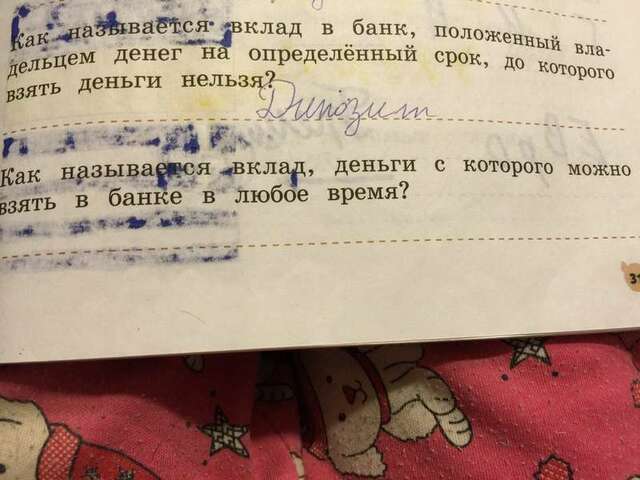 Как называется вклад в банк, положенный вла-
дельцем денег на определённый срок, до которого
взять деньги нельзя?
Дипозит
Как называется вклад, деньги с которого можно
взять в банке в любое время?
31